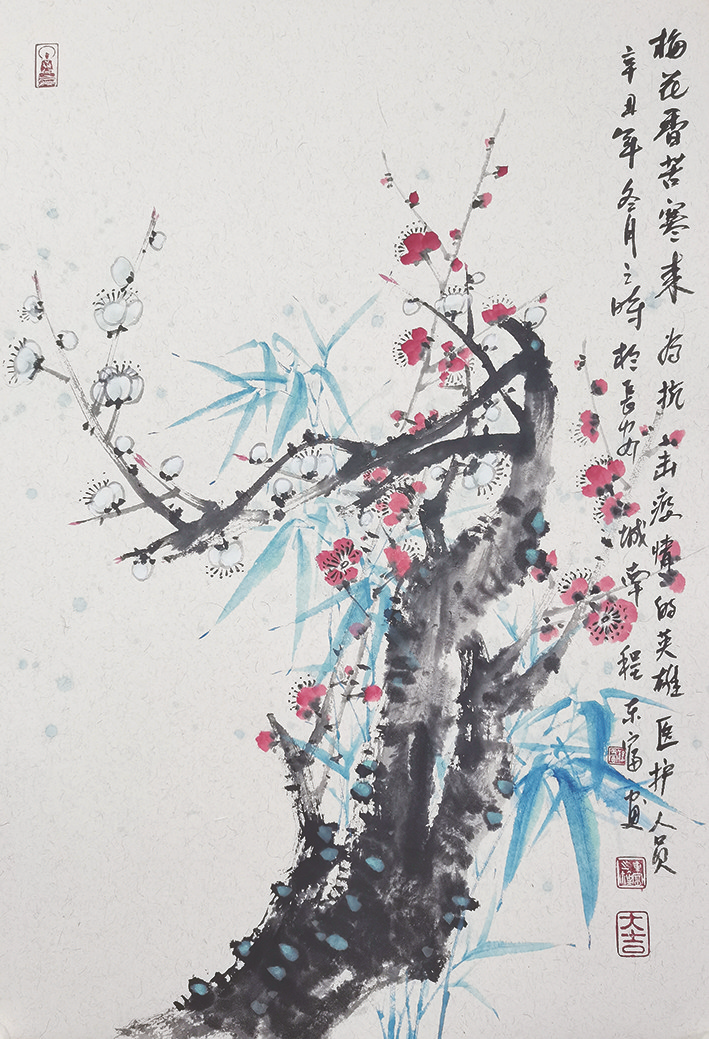 梅花香苦寒来 为抗击疫情的英雄医护人员
辛丑年冬月之时於长安城南 程东富画
大吉